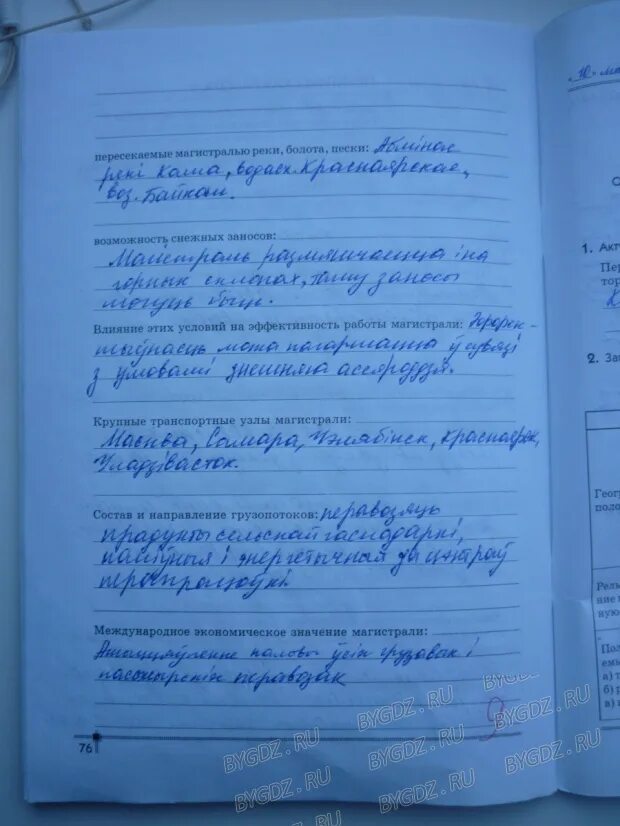 пересекаемые магистралью реки, болота, пески: Абмінае
рэкі Кама, водасх. Красноярскае,
воз. Байкал.
возможность снежных заносов:
Магістраль размяшчаецца і на
горных схілах, таму заносы
могуць быць.
Влияние этих условий на эффективность работы магистрали:
мота пагаршацца ў сувязі
з умовамі знешняга асяроддзя.
Крупные транспортные узлы магистрали:
Масква, Самара, Чэлябінск, Краснаярк,
Уладзівасток.
Состав и направление грузопотоков: перавозяць
прадукты сельскай гаспадаркі,
паліўныя і энергетычныя да цэнтраў
перапрацоўкі
Международное экономическое значение магистрали:
паловы ўсіх грузавых і
пассажырскіх перавозак
76
9
"10" ма
1. Акт
Пер
тор
2. За
Геог
поло
Рель
ние
ную
Пол
емь
а) т
б) р
в)
BYGDZ.RU
BYGDZ.RU
BYGDZ.RU
BYGDZ.RU
BYGDZ.RU
BYGDZ.RU